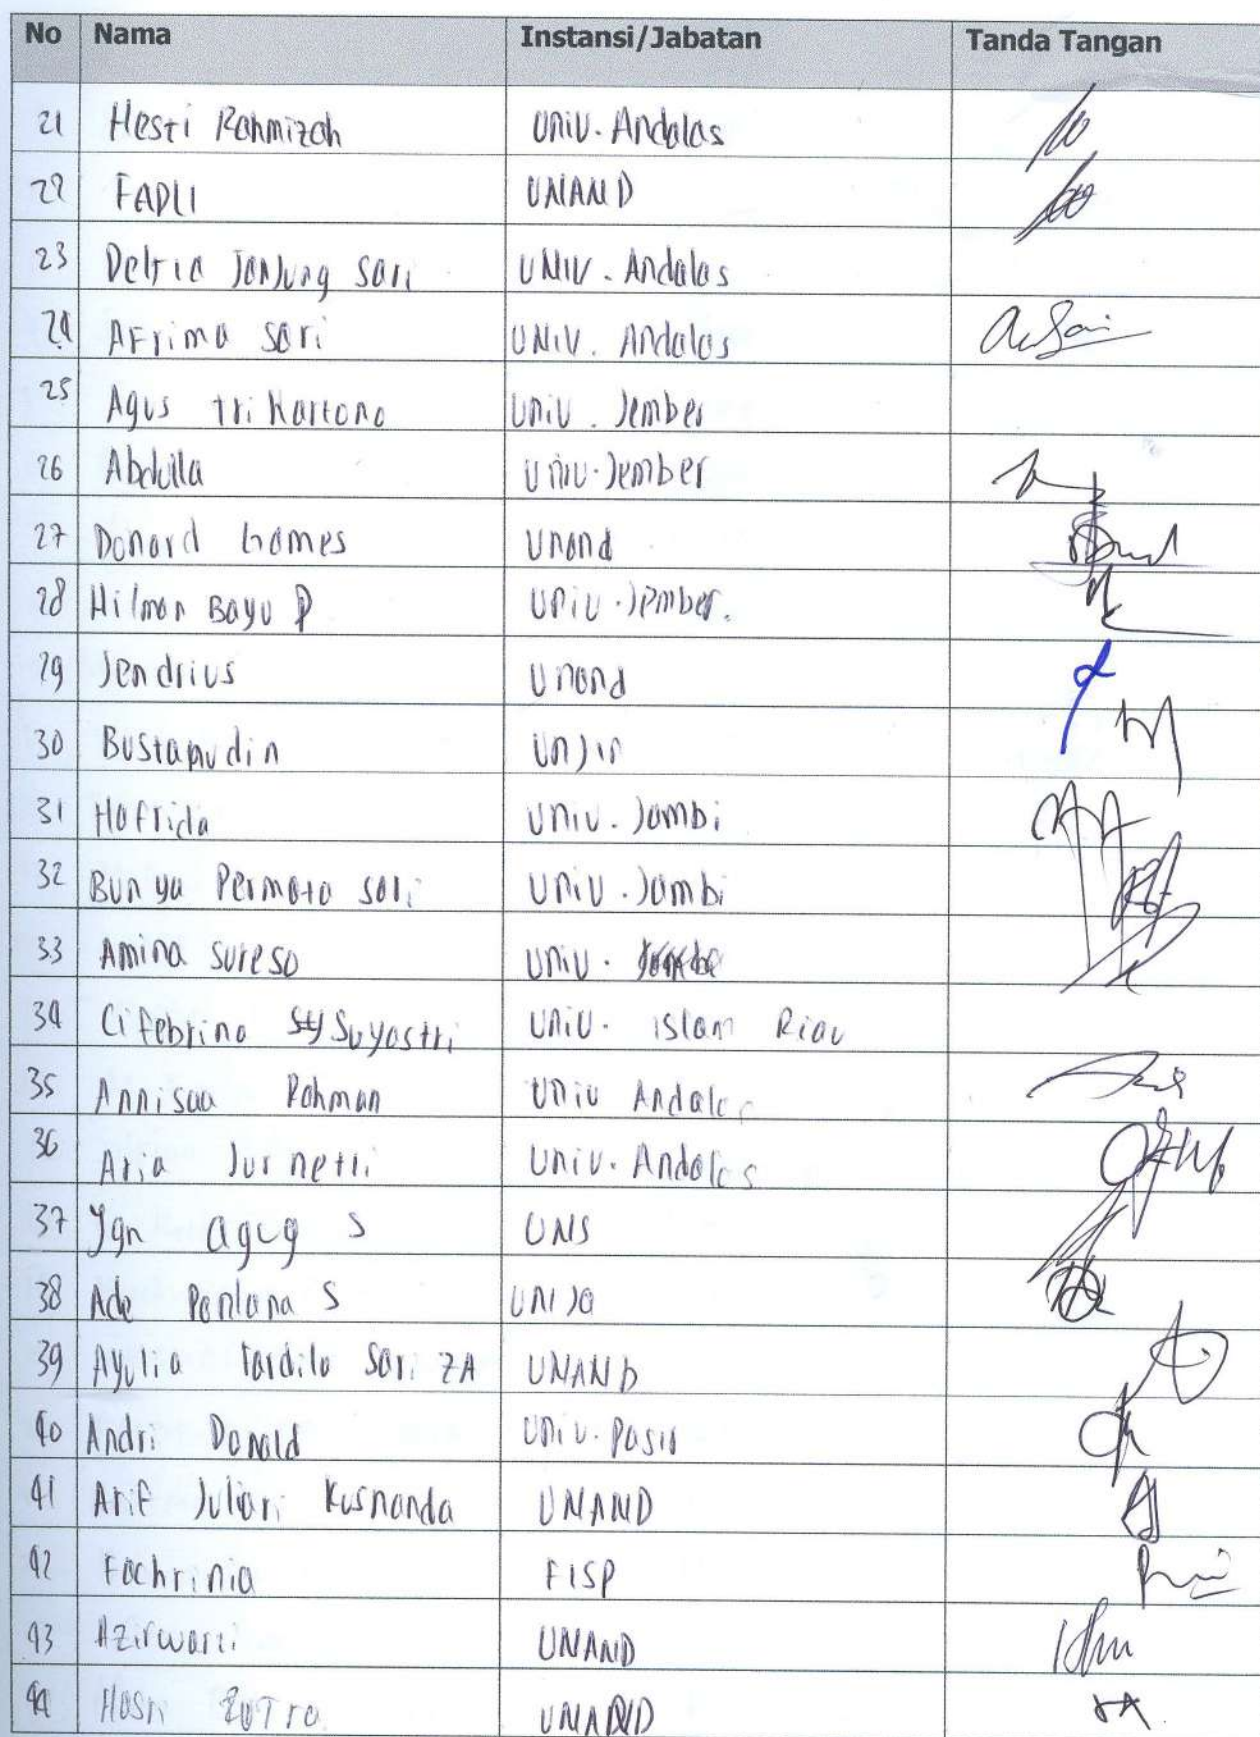 No Nama Instansi/Jabatan Tanda Tangan
21 Hesti Rahmizah Univ. Andalas
22 FADLI UNAND
23 Delfia Tanjung Sari UNIV. Andalas
24 AFrima Sari UNIV. Andalas
25 Agus tri Hartono Univ. Jember
26 Abdulla Univ. Jember
27 Donard Games Unand
28 Hilman Bayu P Univ. Jember.
29 Jendrius Unand
30 Univ
31 Hafrida Univ. Jambi
32 Bunya Permata Sari Univ. Jambi
33 Amina sureso Univ.
34 Cifebrina Suyastri Univ. Islam Riau
35 Annisaa Rahman Univ Andalas
36 Aria Jurnetti Univ. Andalas
37 Ign agug S UNS
38 Ade S UNJA
39 Ayulia Fardila Sari ZA UNAND
40 Andri Donald Univ. Pasir
41 Arif Juliari Kusnanda UNAND
42 Fachrinia FISP
43 UNAND
44 UNAND